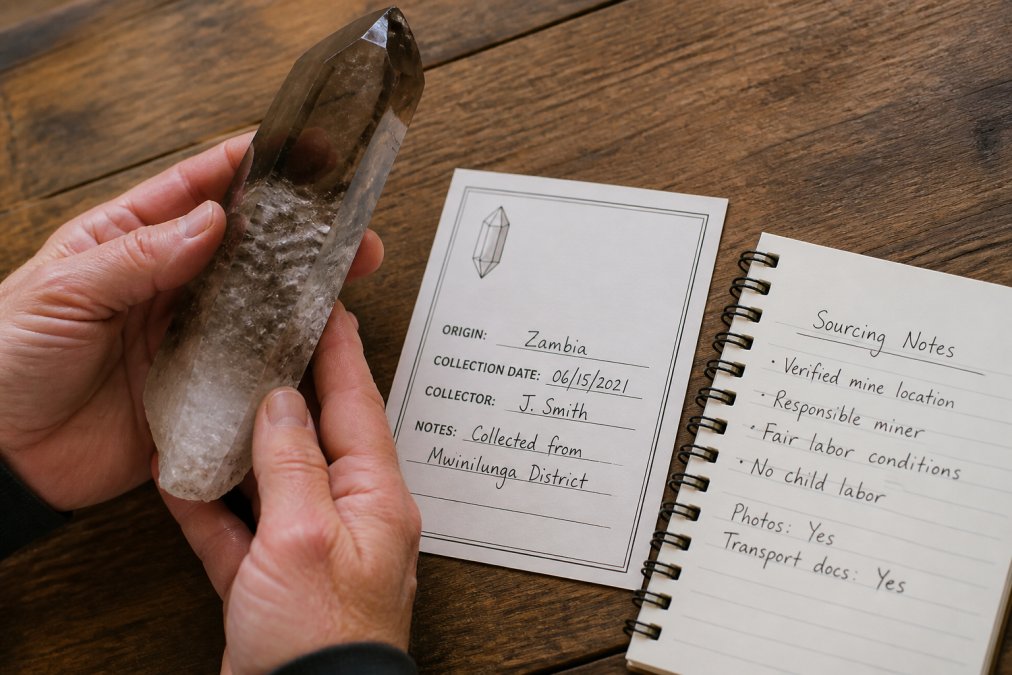 ORIGIN: Zambia
COLLECTION DATE: 06/15/2021
COLLECTOR: J. Smith
NOTES: Collected from
Mwinilunga District
Sourcing Notes
• Verified mine location
• Responsible miner
• Fair labor conditions
• No child labor
Photos: Yes
Transport docs: Yes